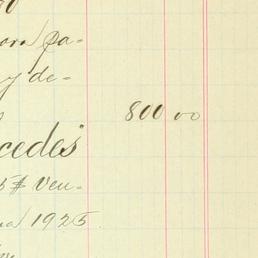 ora pa-
y de-
800 00
cedes
5 $ Ven-
1925